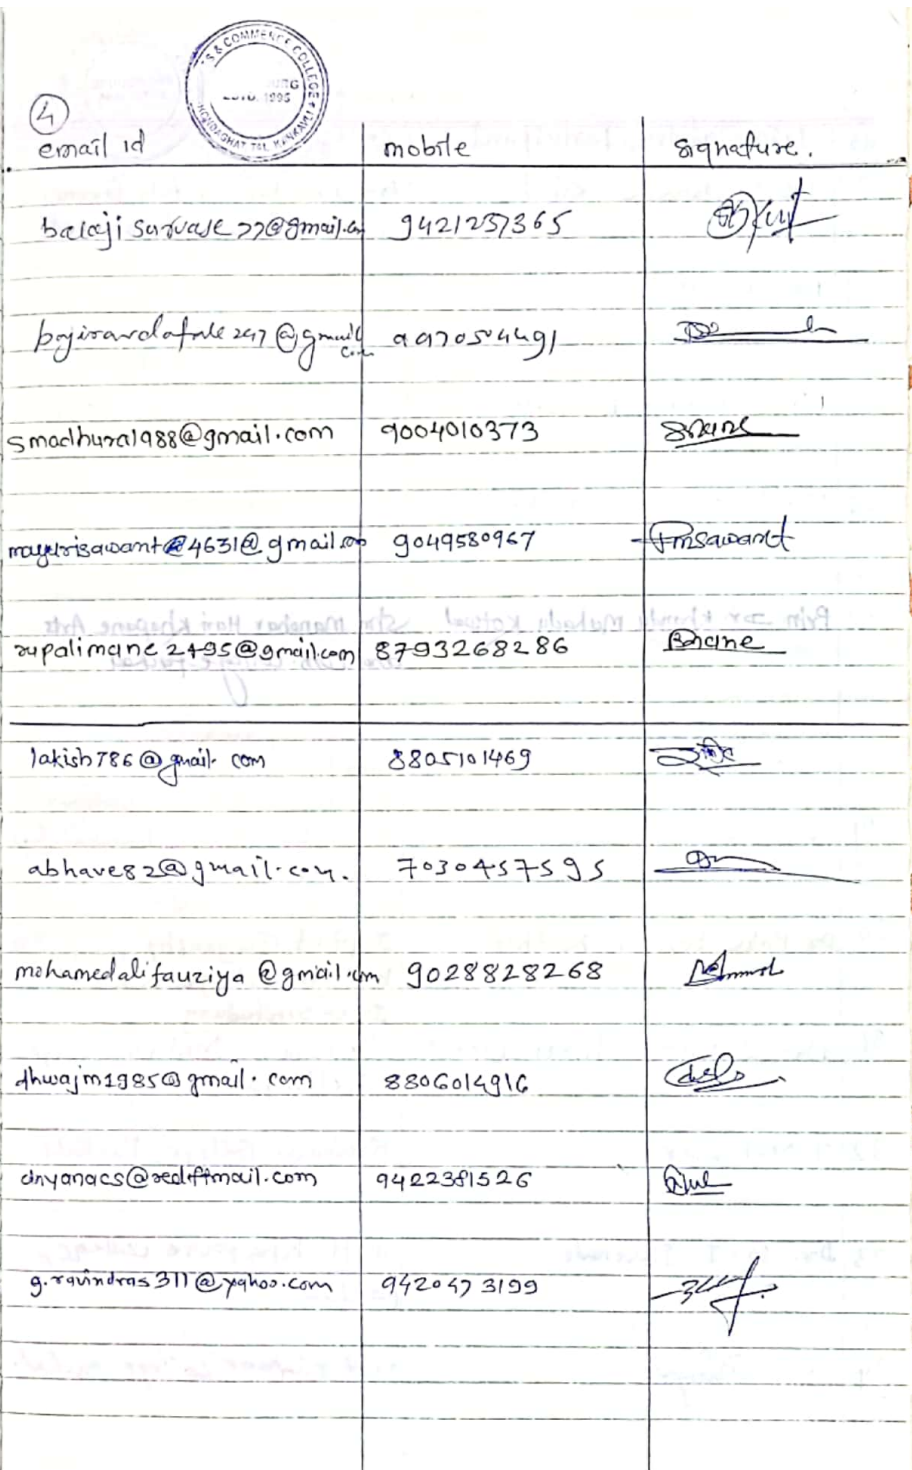 S & COMMERCE COLLEGE
ESTD. 1995
HONDAGHAT TAL. KANKAVLI
4
email id mobile signature.
balaji survase 77@gmail.com 9421257365
bajiraodafale247@gmail.com 9970504491
smadhura1988@gmail.com 9004010373
mayurisawant4631@gmail.com 9049580967 PMSawant
rupalimane2495@gmail.com 8793268286 BMane
lakish786@gmail.com 8805101469
abhave82@gmail.com. 7030457595
mohamedalifauziya@gmail.com 9028828268
dhwajm1985@gmail.com 8806014916
dnyanacs@rediffmail.com 9422381526
g.ravindras311@yahoo.com 9420473199